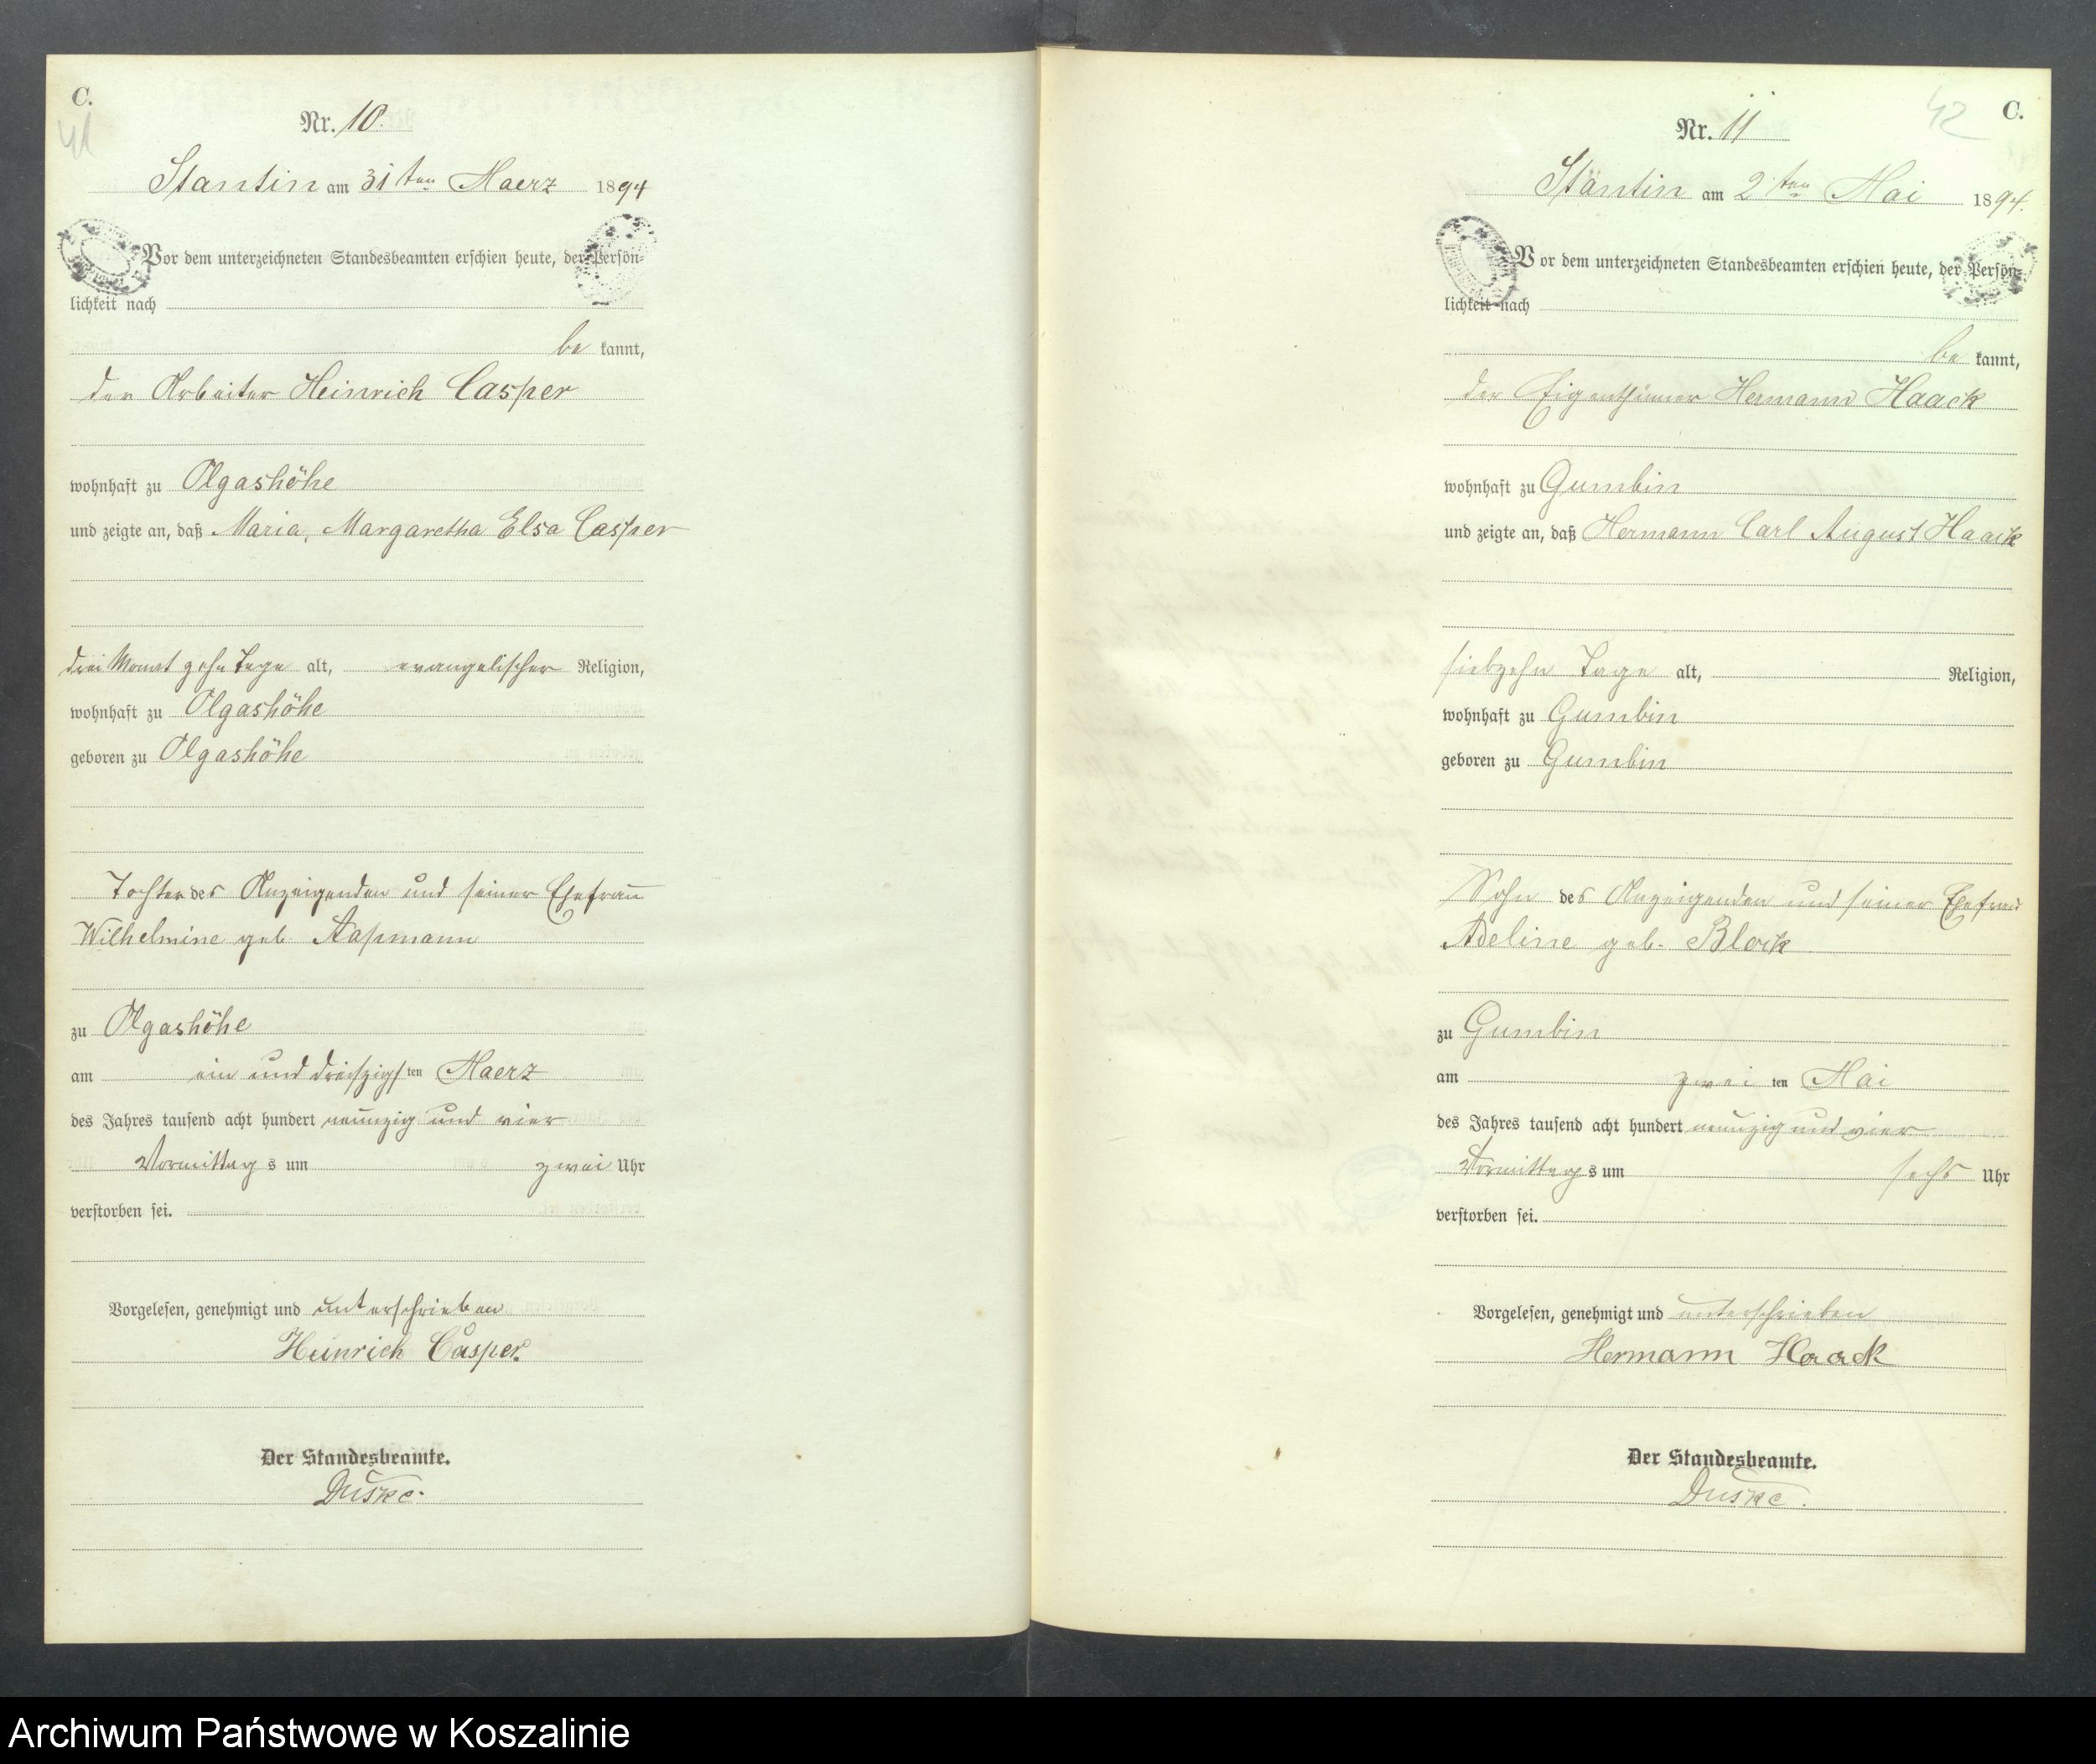 C.
41
Nr. 10.
Stantin am 31ten Maerz 1894
Vor dem unterzeichneten Standesbeamten erschien heute, der Persön-
lichkeit nach
be kannt,
der Arbeiter Heinrich Casper
wohnhaft zu Olgashöhe
und zeigte an, daß Maria, Margaretha Elsa Casper
drei Monat zehn Tage alt, evangelischer Religion,
wohnhaft zu Olgashöhe
geboren zu Olgashöhe
Tochter des Anzeigenden und seiner Ehefrau
Wilhelmine geb.
zu Olgashöhe
am ein und dreiszigsten Maerz
des Jahres tausend acht hundert neunzig und vier
Vormittags um zwei Uhr
verstorben sei.
Vorgelesen, genehmigt und unterschrieben
Heinrich Casper.
Der Standesbeamte.
Duske.
42
C.
Nr. 11
Stantin am 2ten Mai 1894.
Vor dem unterzeichneten Standesbeamten erschien heute, der Persön-
lichkeit nach
be kannt,
der Eigenthümer Hermann Haack
wohnhaft zu Gumbin
und zeigte an, daß Hermann Carl August Haack
siebzehn Tage alt, Religion,
wohnhaft zu Gumbin
geboren zu Gumbin
Sohn des Anzeigenden und seiner Ehefrau
Adeline geb. Block
zu Gumbin
am zweiten Mai
des Jahres tausend acht hundert neunzig und vier
Vormittags um sechs Uhr
verstorben sei.
Vorgelesen, genehmigt und unterschrieben
Hermann Haack
Der Standesbeamte.
Duske.
Archiwum Państwowe w Koszalinie